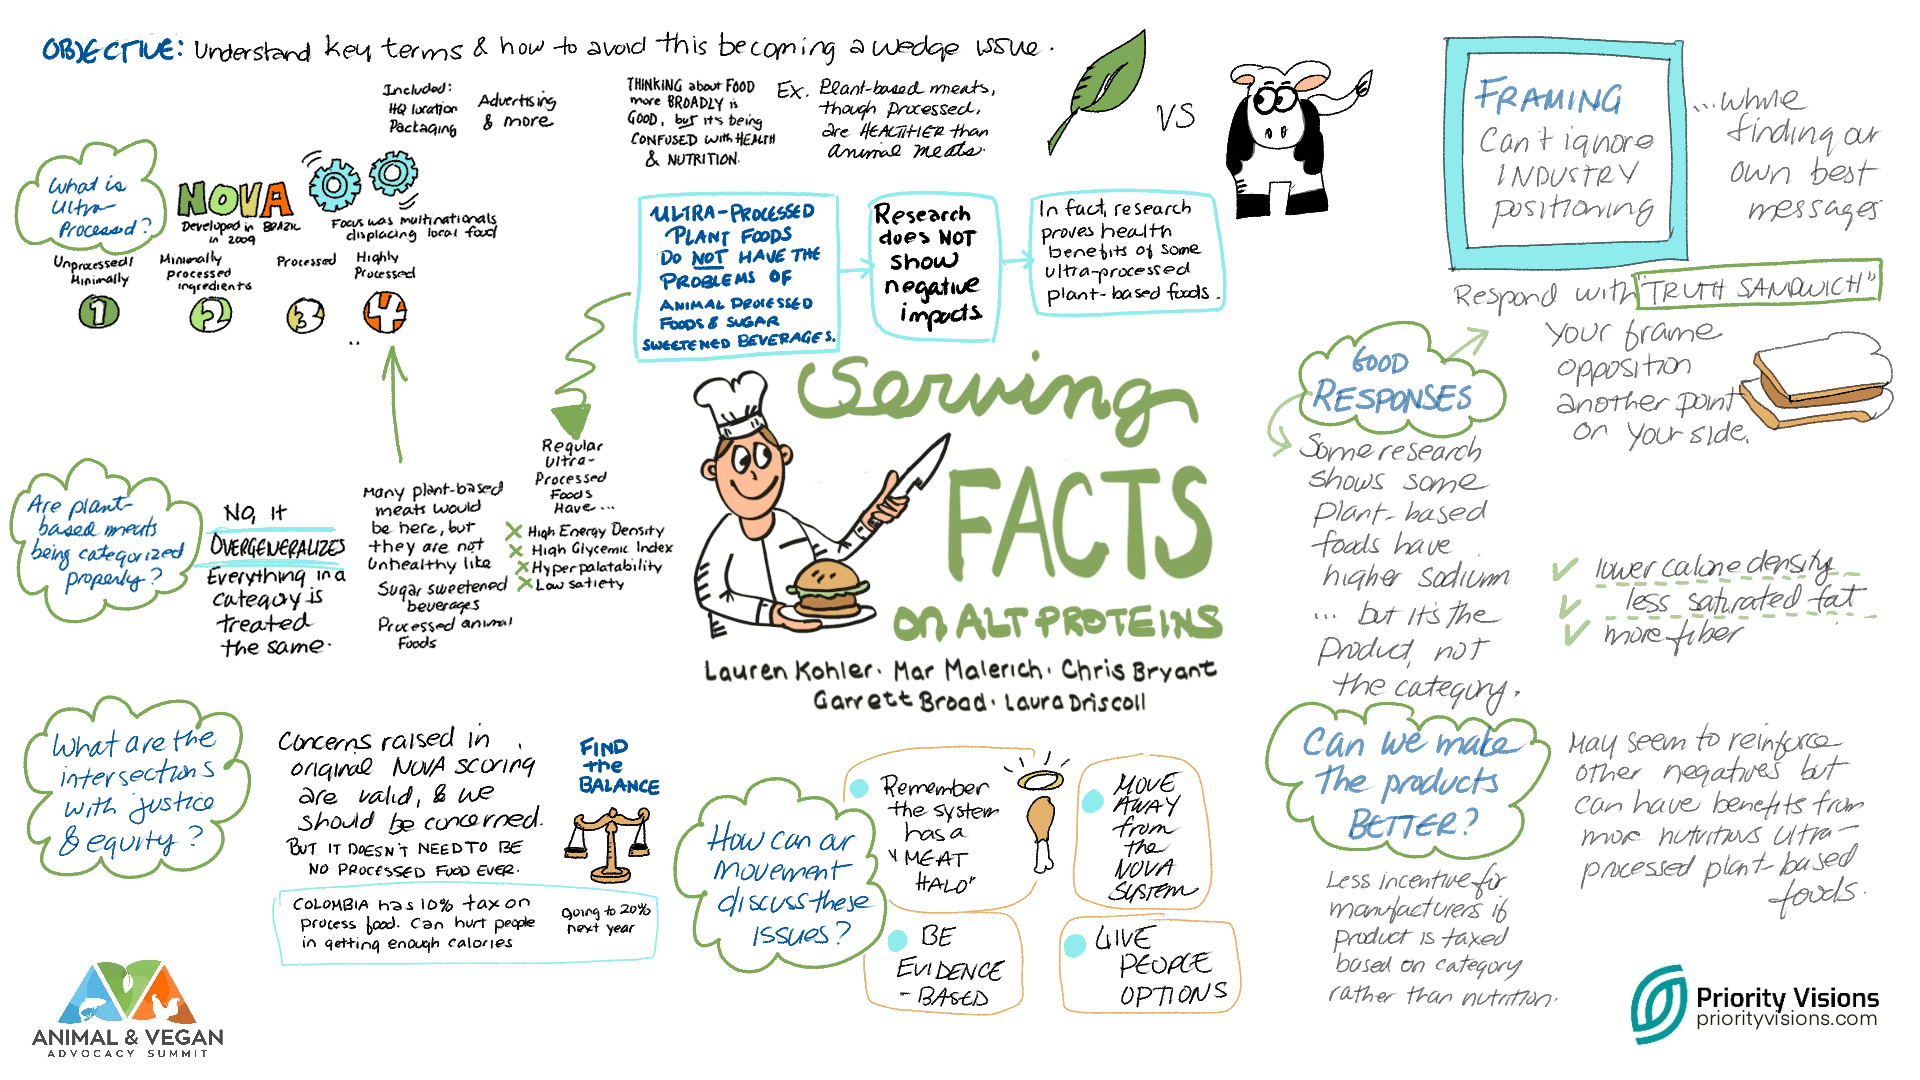 OBJECTIVE: Understand key terms & how to avoid this becoming a wedge issue.
Included:
HQ location
Packaging
Advertising
& more
THINKING about FOOD
more BROADLY is
GOOD, but it's being
CONFUSED with HEALTH
& NUTRITION.
Ex. Plant-based meats,
though processed,
are HEALTHIER than
animal meats.
VS
What is
Ultra-
Processed?
NOVA
Developed in BRAZIL
in 2009
Focus was multinationals
displacing local food
Unprocessed/
Minimally
1
Minimally
processed
ingredients
2
Processed
3
Highly
Processed
4
ULTRA-PROCESSED
PLANT FOODS
DO NOT HAVE THE
PROBLEMS OF
ANIMAL PROCESSED
FOODS & SUGAR
SWEETENED BEVERAGES.
Research
does NOT
show
negative
impacts
In fact, research
proves health
benefits of some
ultra-processed
plant-based foods.
Are plant-
based meats
being categorized
properly?
NO, it
OVERGENERALIZES
Everything in a
category is
treated
the same.
Many plant-based
meats would
be here, but
they are not
unhealthy like
Sugar sweetened
beverages
Processed animal
Foods
Regular
Ultra-
Processed
Foods
Have...
High Energy Density
High Glycemic Index
Hyperpalatability
Low satiety
Serving
FACTS
on ALT PROTEINS
Lauren Kohler. Mar Malerich. Chris Bryant
Garrett Broad. Laura Driscoll
What are the
intersections
with justice
& equity?
Concerns raised in
original NOVA scoring
are valid, & we
should be concerned.
BUT IT DOESN'T NEED TO BE
NO PROCESSED FOOD EVER.
FIND
the
BALANCE
COLOMBIA has 10% tax on
process food. Can hurt people
in getting enough calories
going to 20%
next year
How can our
movement
discuss these
issues?
Remember
the system
has a
"MEAT
HALO"
MOVE
AWAY
from
the
NOVA
SYSTEM
BE
EVIDENCE
-BASED
GIVE
PEOPLE
OPTIONS
FRAMING
Can't ignore
INDUSTRY
positioning
...while
finding our
own best
messages
Respond with "TRUTH SANDWICH"
your frame
opposition
another point
on your side.
GOOD
RESPONSES
Some research
shows some
plant-based
foods have
higher sodium
... but it's the
product, not
the category.
lower calorie density
less saturated fat
more fiber
Can we make
the products
BETTER?
May seem to reinforce
other negatives but
can have benefits from
more nutritious ultra-
processed plant-based
foods.
Less incentive for
manufacturers if
product is taxed
based on category
rather than nutrition.
ANIMAL & VEGAN
ADVOCACY SUMMIT
Priority Visions
priorityvisions.com